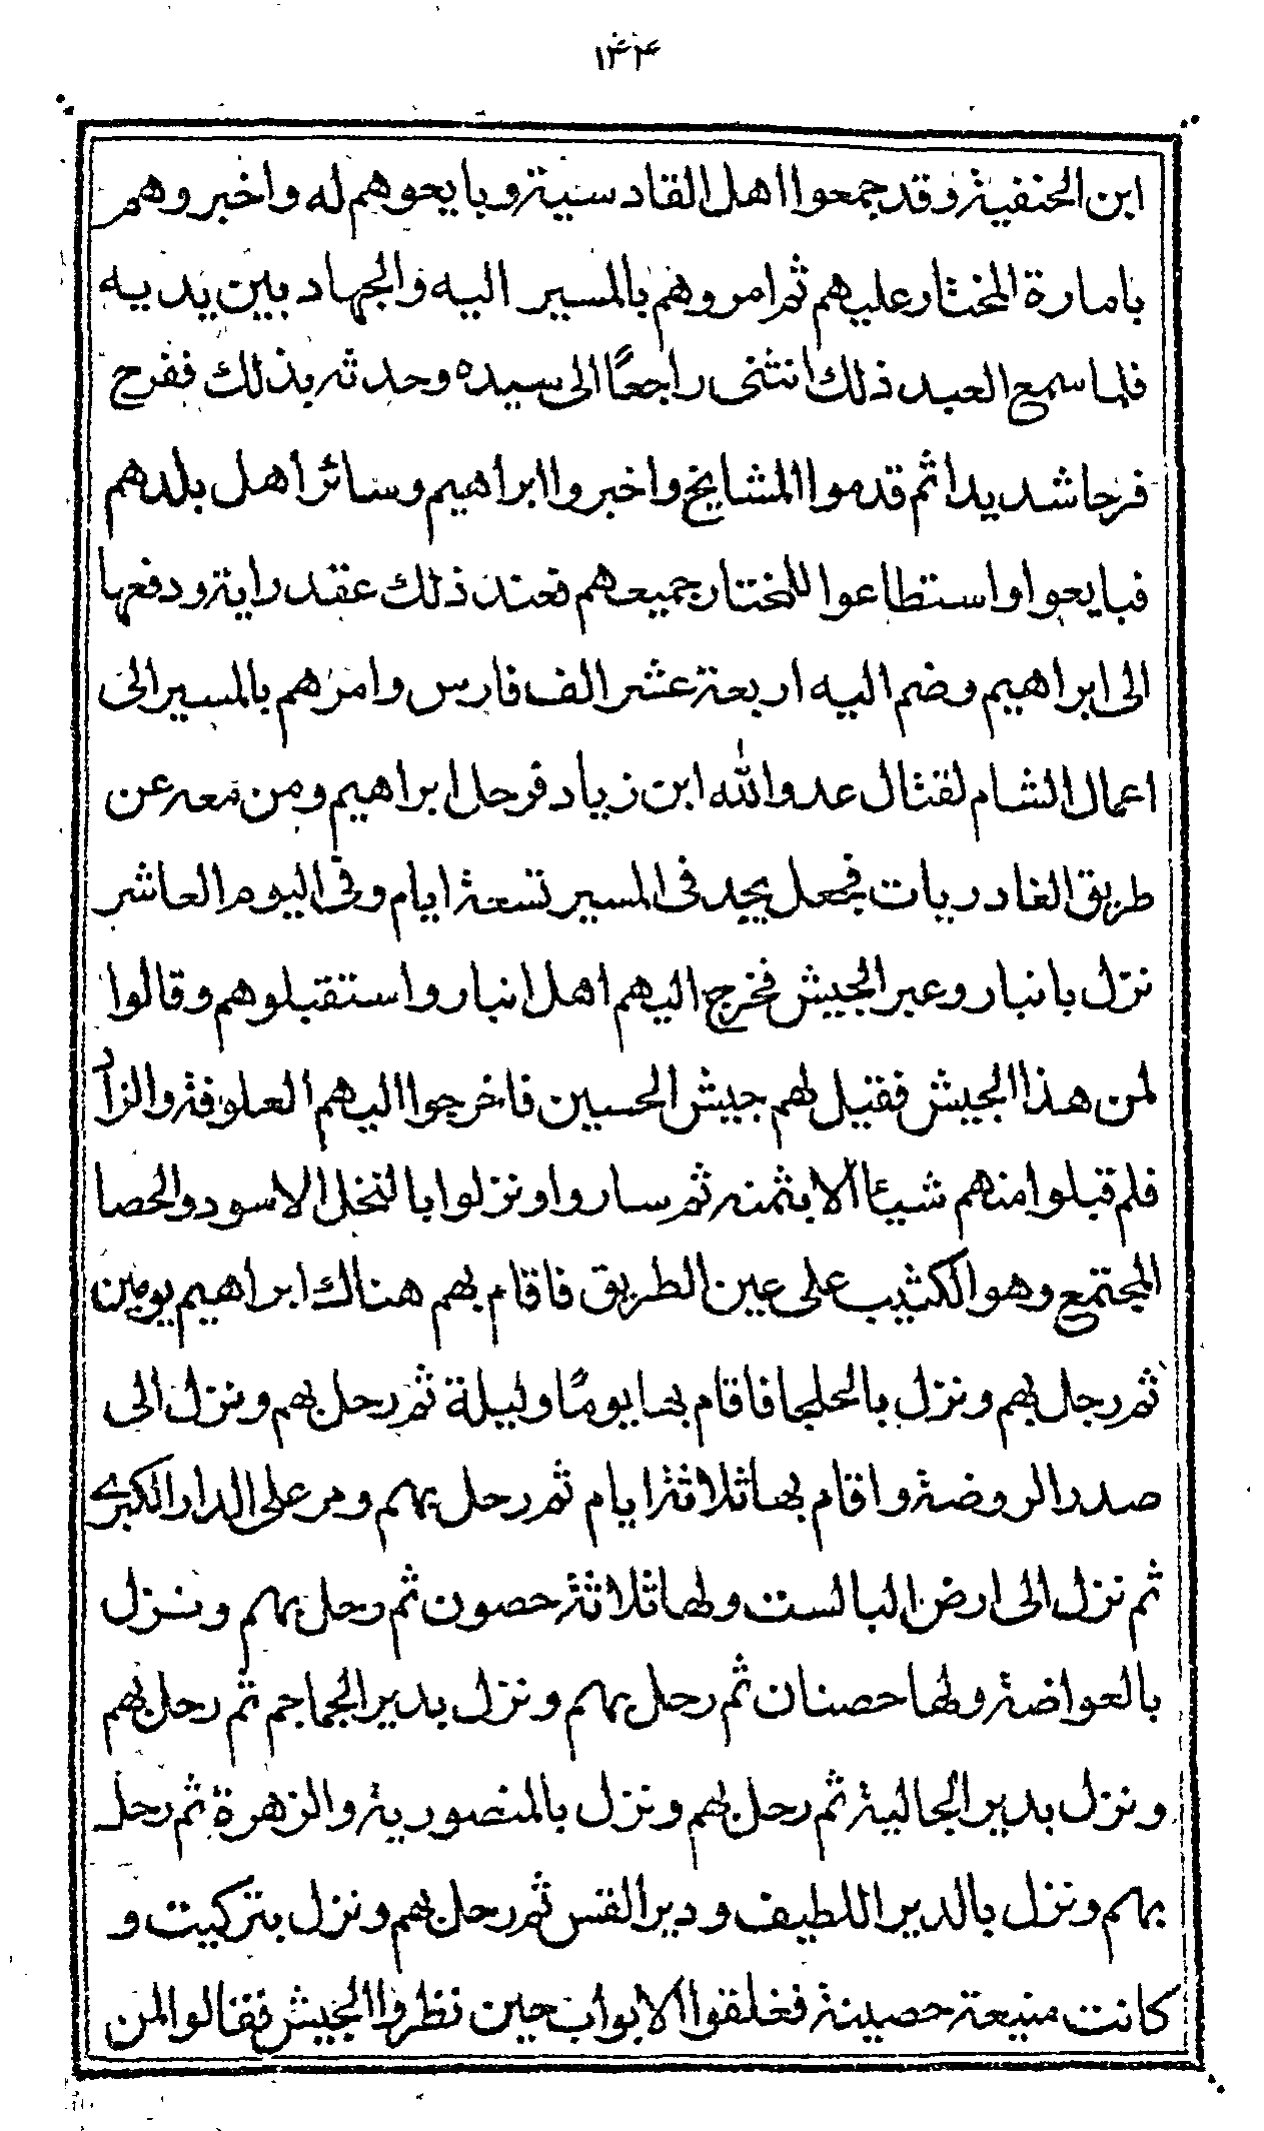 ١٣۴
ابن الحنفية وقد جمعوا اهل القادسية وبايعوهم له واخبروهم
بامارة المختار عليهم ثم امروهم بالمسير اليه والجهاد بين يديه
فلما سمع العبد ذلك انثنى راجعًا الى سيده وحدثه بذلك ففرح
فرحا شديدا ثم قدموا المشايخ واخبروا ابراهيم وسائر اهل بلدهم
فبايعوا واستطاعوا للمختار جميعهم فعند ذلك عقد راية ودفعها
الى ابراهيم وضم اليه اربعة عشر الف فارس وامرهم بالمسير الى
اعمال الشام لقتال عدو الله ابن زياد فرحل ابراهيم ومن معه عن
طريق الغادريات فجعل يجد فى المسير تسعة ايام وفى اليوم العاشر
نزل بانبار وعبر الجيش فخرج اليهم اهل انبار واستقبلوهم وقالوا
لمن هذا الجيش فقيل لهم جيش الحسين فاخرجوا اليهم العلوفة والزاد
فلم قبلوا منهم شيئا الا بثمنه ثم ساروا ونزلوا بالنخل الاسود والحصا
المجتمع وهو الكثيب على عين الطريق فاقام بهم هناك ابراهيم يومين
ثم رحل بهم ونزل بالحليجا فاقام بها يومًا وليلة ثم رحل بهم ونزل الى
صدر الروضة واقام بها ثلاثة ايام ثم رحل بهم ومر على الدار الكبرى
ثم نزل الى ارض البالست ولها ثلاثة حصون ثم رحل بهم ونزل
بالعواضة ولها حصنان ثم رحل بهم ونزل بدير الجماجم ثم رحل بهم
ونزل بدير الجالية ثم رحل بهم ونزل بالمنصورية والزهرة ثم رحل
بهم ونزل بالدير اللطيف ودير القس ثم رحل بهم ونزل بتركيت و
كانت منيعة حصينة فغلقوا الابواب حين نظروا الجيش فقالوا لمن